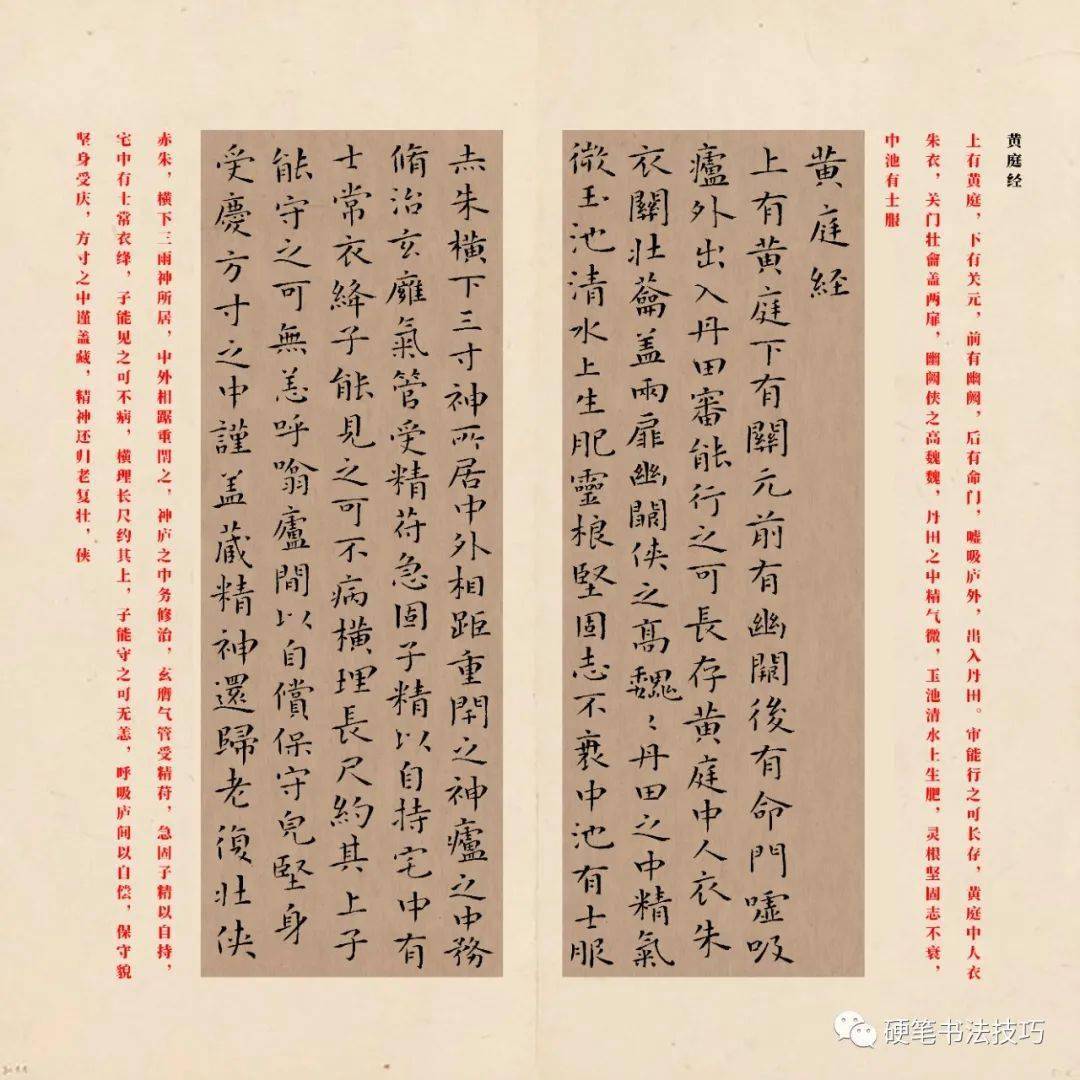 黄庭经
上有黄庭,下有关元,前有幽阙,后有命门,嘘吸庐外,出入丹田。审能行之可长存,黄庭中人衣
朱衣,关门壮龠盖两扉,幽阙侠之高魏魏,丹田之中精气微,玉池清水上生肥,灵根坚固志不衰,
中池有士服
黄庭経
上有黄庭下有關元前有幽闕後有命門嘘吸
廬外出入丹田審能行之可長存黄庭中人衣朱
衣關壯蘥盖兩扉幽闕侠之高魏〻丹田之中精氣
微玉池清水上生肥靈根堅固志不衰中池有士服
赤朱橫下三寸神所居中外相距重閈之神廬之中務
脩治玄癰氣管受精苻急固子精以自持宅中有
士常衣絳子能見之可不病橫理長尺約其上子
能守之可無恙呼噏廬間以自償保守皃堅身
受慶方寸之中謹盖藏精神還歸老復壯侠
赤朱,横下三雨神所居,中外相踞重閈之,神庐之中务修治,玄膺气管受精荷,急固子精以自持,
宅中有士常衣绛,子能见之可不病,横理长尺约其上,子能守之可无恙,呼吸庐间以自偿,保守貌
坚身受庆,方寸之中谨盖藏,精神还归老复壮,侠
硬笔书法技巧